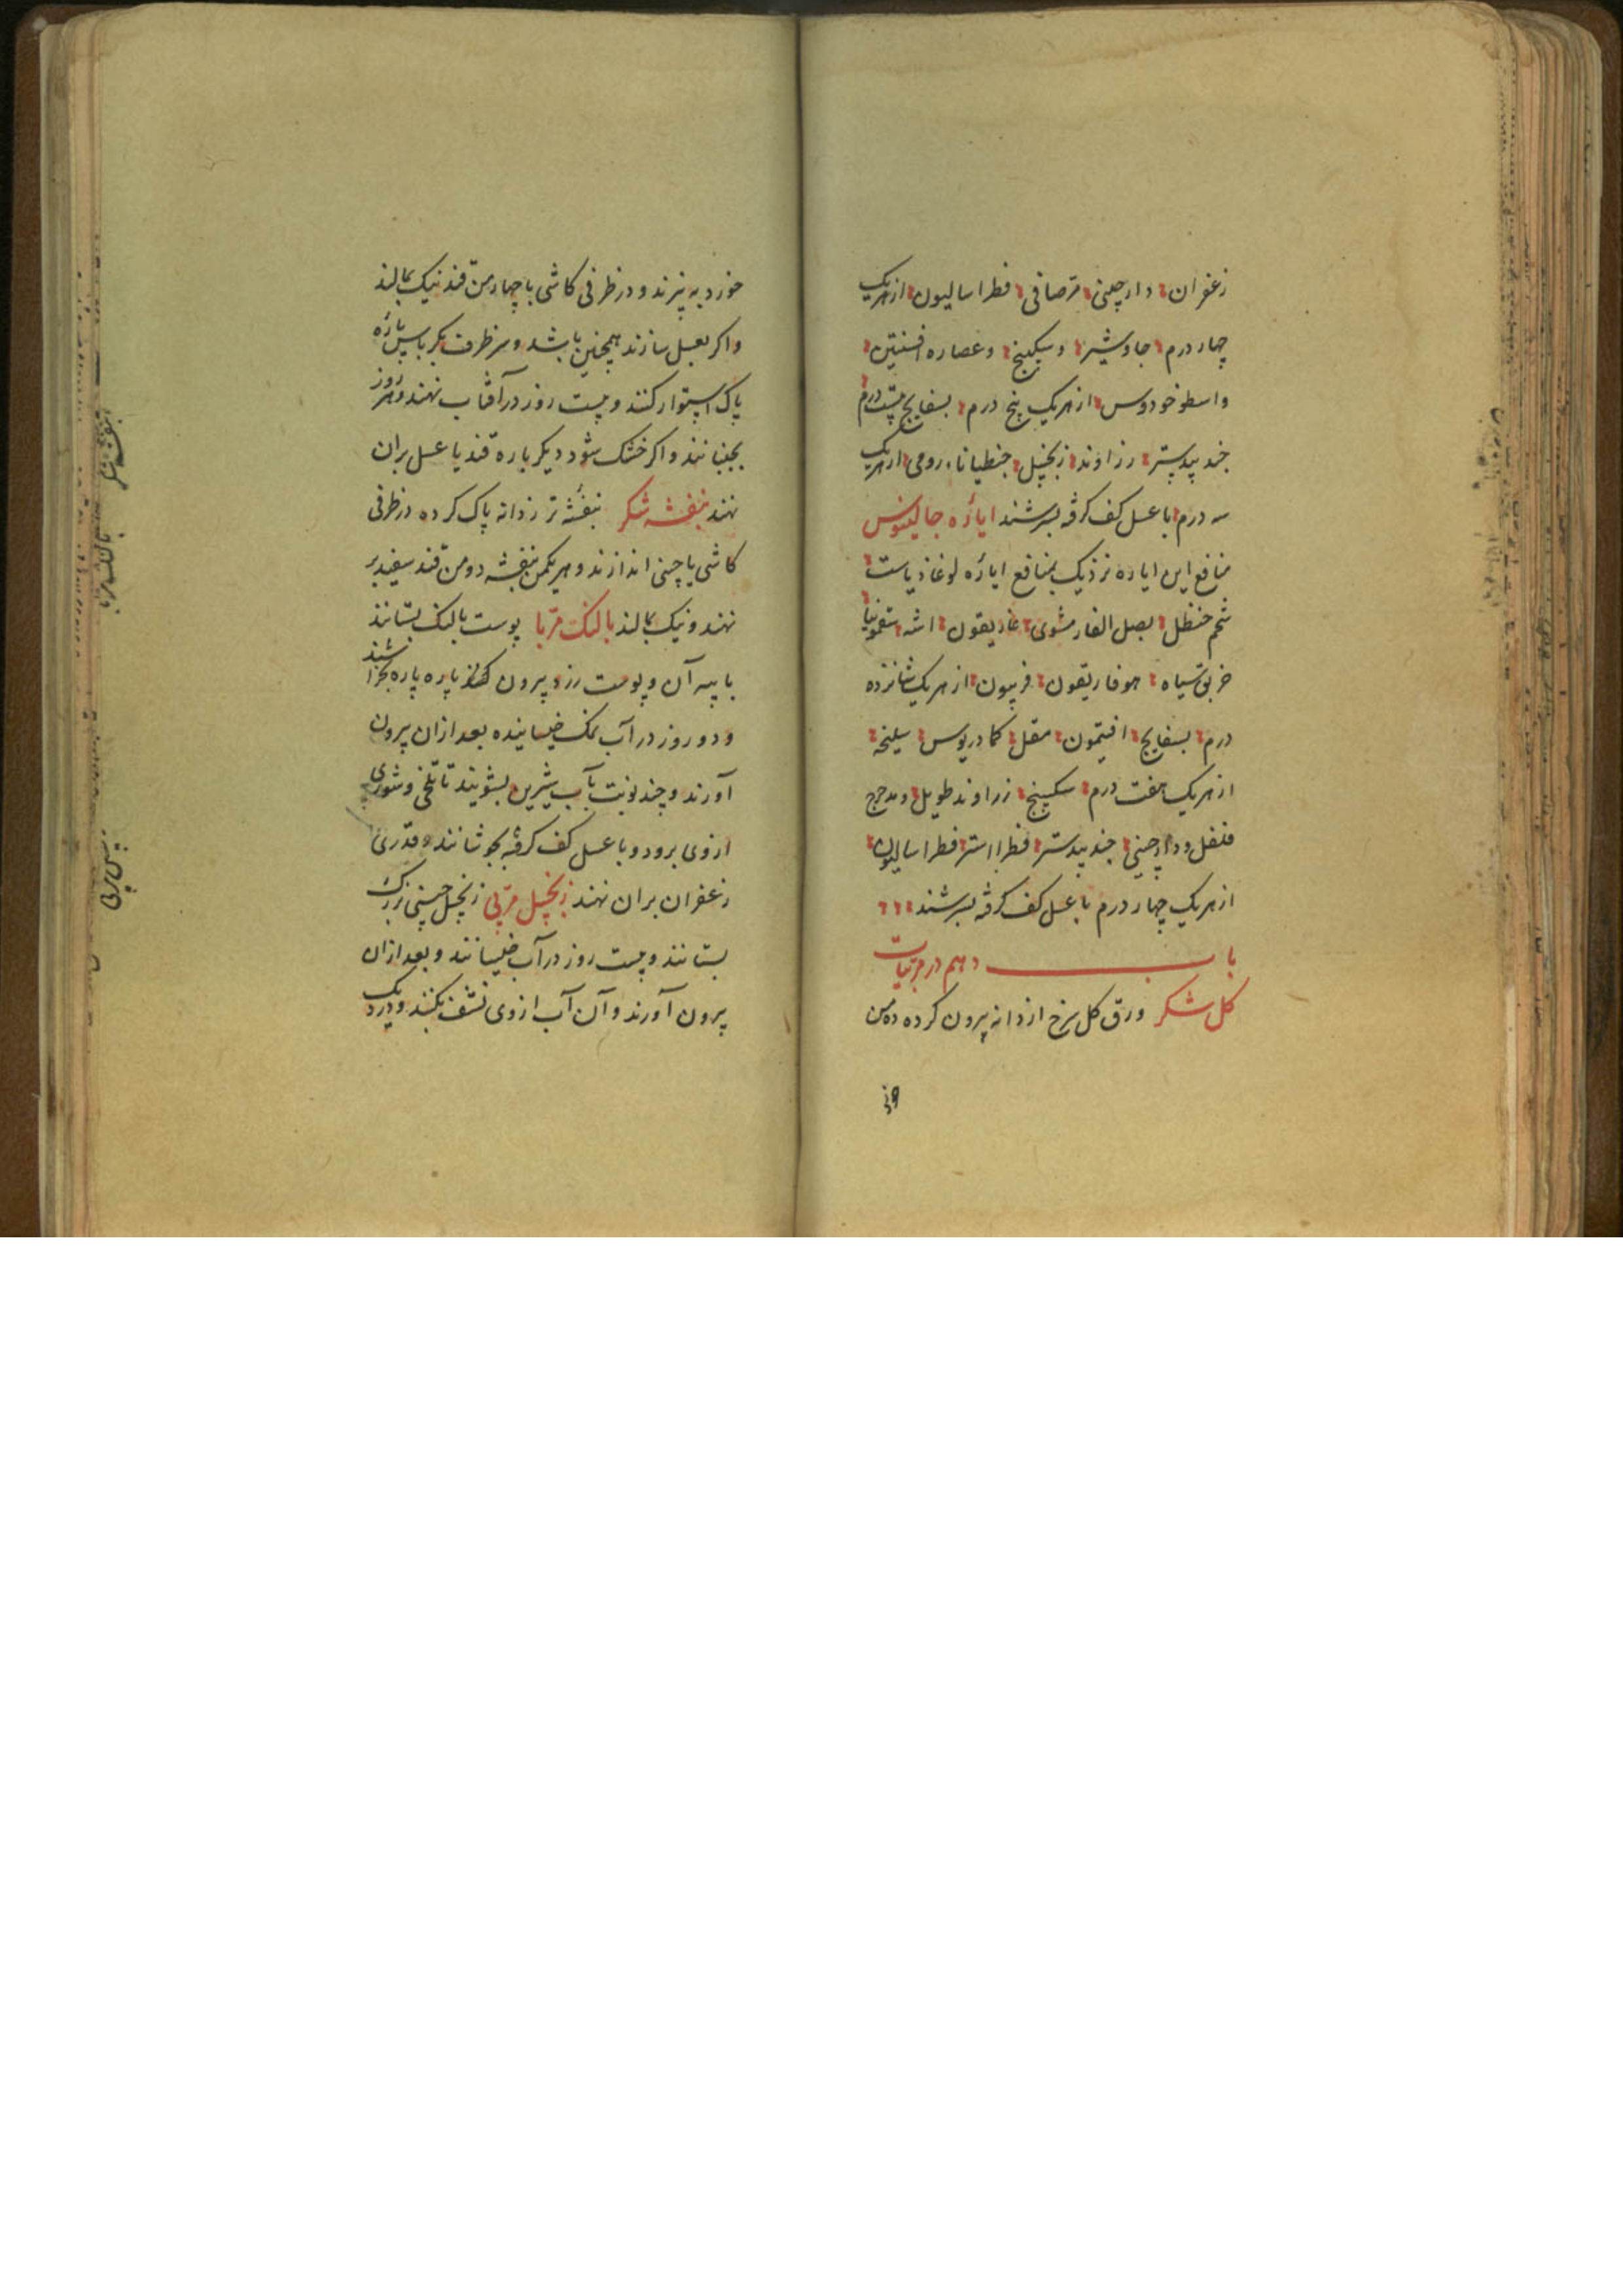 زعفران دارچینی مر صافی فطراسالیون از هریک
چهار درم جاوشیر و سکبینج و عصاره افسنتین
واسطوخودوس از هریک پنج درم بسفایج بیست درم
جند بیدستر رزاوند زنجبیل جنطیانا رومی از هریک
سه درم با عسل کف کرفه بسرشند ایاره جالینوس
منافع این ایاره نزدیک بمنافع ایاره لوغاذیاست
شحم حنظل بصل الفار مشوی غاریقون اشه سقمونیا
خربق سیاه هوفاریقون فربیون از هریک شانزده
درم بسفایج افتیمون مقل کمادریوس سلیخه
از هریک هفت درم سکبینج زراوند طویل و مدحرج
فلفل و دارچینی جند بیدستر فطراسالیون
از هریک چهار درم با عسل کف کرفه بسرشند
باب دهم در مربیات
کل شکر ورق کل سرخ از دانه بیرون کرده ده من
خورد ببرند و در ظرفی کاشی با چهار من قند نیک بمالند
واکر بعسل سازند همچنین باشد و سر ظرف بکرباس پاره
پاک استوار کنند و بیست روز در آفتاب نهند و هر روز
بجنبانند و اکر خشک شود دیکر باره قند یا عسل بران
نهند بنفشه شکر بنفشه تر زدانه پاک کرده در ظرفی
کاشی یا چینی اندازند و بهر یکمن بنفشه دو من قند سفید بر
نهند و نیک بمالند بالنک مربا پوست بالنک بستانند
با پیه آن و پوست زرد بیرون کنند پاره پاره بخراشند
و دو روز در آب نمک خیسانیده بعد از ان بیرون
آورند و چند نوبت بآب شیرین بشویند تا تلخی و شوری
ازوی برود و با عسل کف کرفه بجوشانند و قدری
زعفران بران نهند زنجبیل مربی زنجبیل چینی بزرک
بستانند و بیست روز در آب خیسانند و بعد ازان
بیرون آورند و آن آب ازوی نشف بکنند و در دیک
بنفشه شکر
بالنک مربا